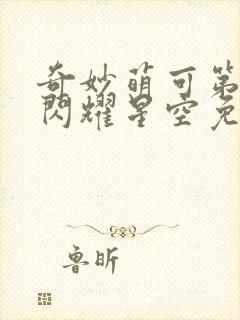 奇妙萌可第
閃耀星空免
魯昕